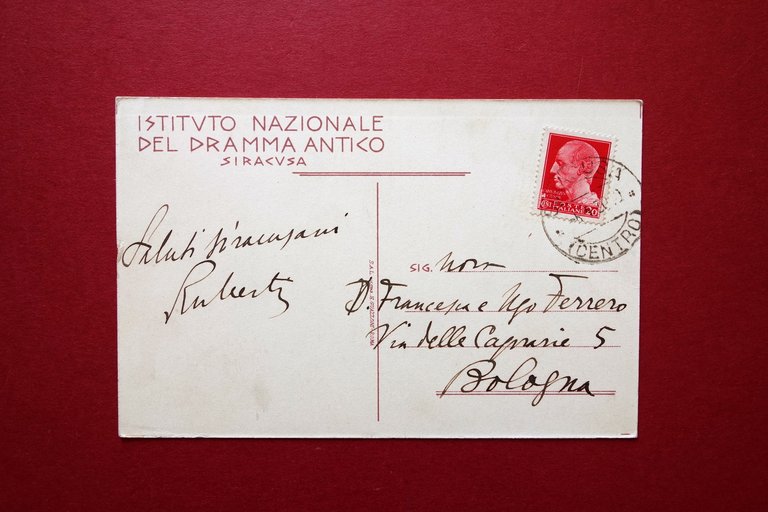 ISTITVTO NAZIONALE
DEL DRAMMA ANTICO
SIRACVSA
Saluti siracusani
Ruberti
SIG. Nora
D. Francesca e Ugo Ferrero
Via delle Caprarie 5
Bologna
POSTE
ITALIANE
20
(CENTRO)